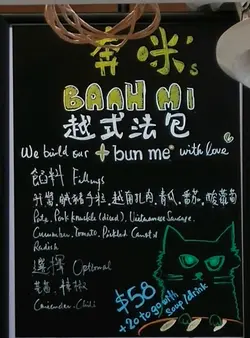 奔咪's
BAAH MI
越式法包
We build our + bun me" with love
餡料 Fillings
升醬, 鹹豬手粒, 越南扎肉, 青瓜, 蕃茄, 酸蘿蔔
Pate, Pork Knuckle (diced), Vietnamese Sausage,
Cucumber, Tomato, Pickled Carrot &
Radish
選擇 Optional
芫荽, 辣椒
Coriander, Chili
$58
+20 to go with
soup/drink